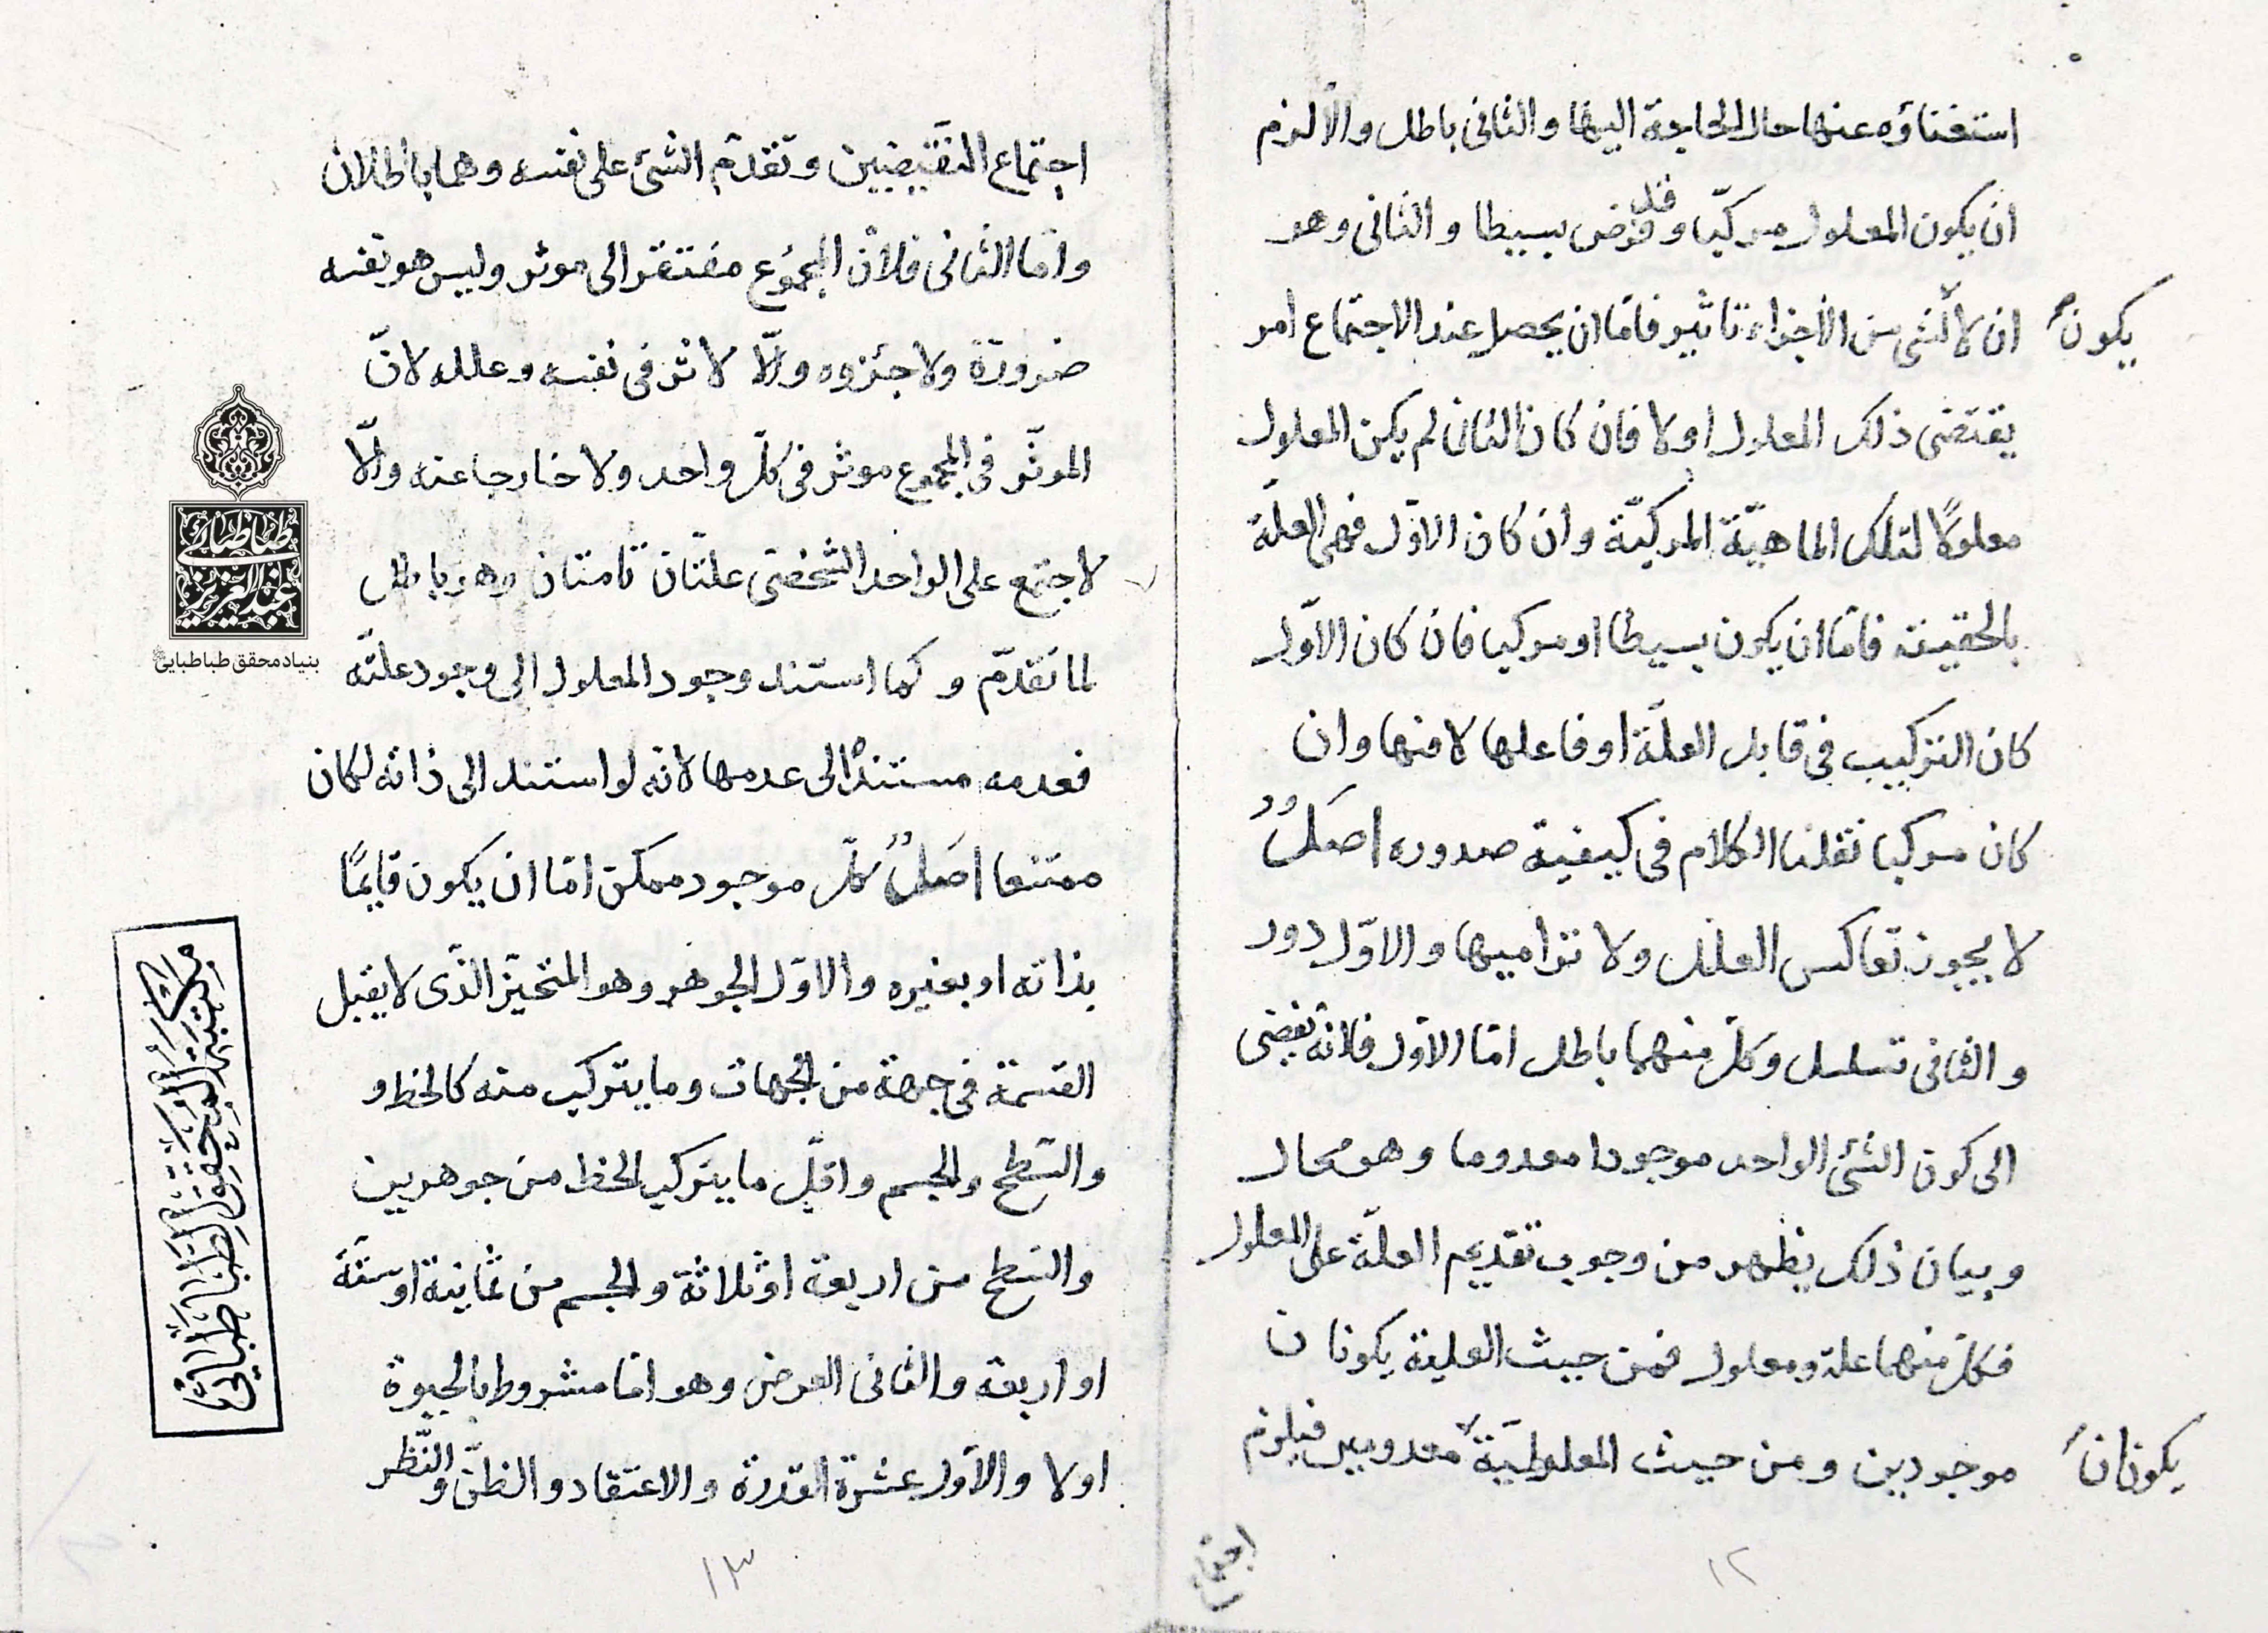 استغناؤه عنها حال الحاجة اليها والثانى باطل والا لزم
ان يكون المعلول مركبّا وقد فرض بسيطا والثانى وهو
ان لا لشئ من الأجزاء تاثير فامّا ان يحصل عند الاجتماع امر
يكون
يقتضى ذلك المعلول او لا فان كان الثانى لم يكن المعلول
معلولًا لتلك الماهيّة المركبّة وان كان الاوّل فهى العلّة
بالحقيقة فامّا ان يكون بسيطا او مركبا فان كان الاوّل
كان التركيب فى قابل العلّة او فاعلها لا منها وان
كان مركبا نقلنا الكلام فى كيفية صدوره اصَلٌ
لا يجوز تعاكس العلل ولا تراميها والاوّل دور
والثانى تسلسل وكلّ منهما باطل امّا الاوّل فلانّه يفضى
الى كون الشئ الواحد موجودا معدوما وهو محال
وبيان ذلك يظهر من وجوب تقديم العلّة على المعلول
فكلّ منهما علة ومعلول فمن حيث العلية يكونان
موجودين ومن حيث المعلوليّة معدومين فيلزم
يكونان
اجتماع
١٢
اجتماع النقّيضين وتقدّم الشئ على نفسه وهما باطلان
وامّا الثانى فلانّ المجموع مفتقر الى موثر وليس هو نفسه
ضرورة ولا جزوه والّا لاثر فى نفسه وعلله لانّ
الموثّر فى المجموع موثر فى كلّ واحد ولا خارجا عنه والّا
لاجتمع على الواحد الشخصّى علتّان تامتان وهو باطل
لما تقدّم وكما استند وجود المعلول الى وجود علته
فعدمه مستندٌ الى عدمها لانّه لو استند الى ذاته لكان
ممتنعا اصَلٌ كلّ موجود ممكن امّا ان يكون قايمًا
بذاته او بغيره والاوّل الجوهر وهو المتحيّز الذّى لا يقبل
القسمة فى جهة من الجهات وما يتركب منه كالخط و
والسّطح والجسم واقلّ ما يتركب الخط من جوهرين
والسّطح من اربعة او ثلاثة والجسم من ثمانية او ستّة
او اربعة والثانى العرض وهو امّا مشروط بالحيوة
او لا والاوّل عشرة القدرة والاعتقاد والظنّ والنّظر
١٣
طباطبائى
عبدالعزيز
بنیاد محقق طباطبایی
مكتبة المحقق الطباطبائي